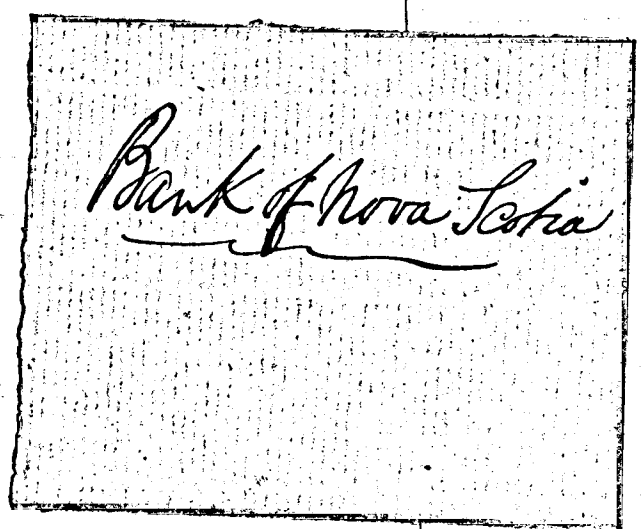 Bank of Nova Scotia